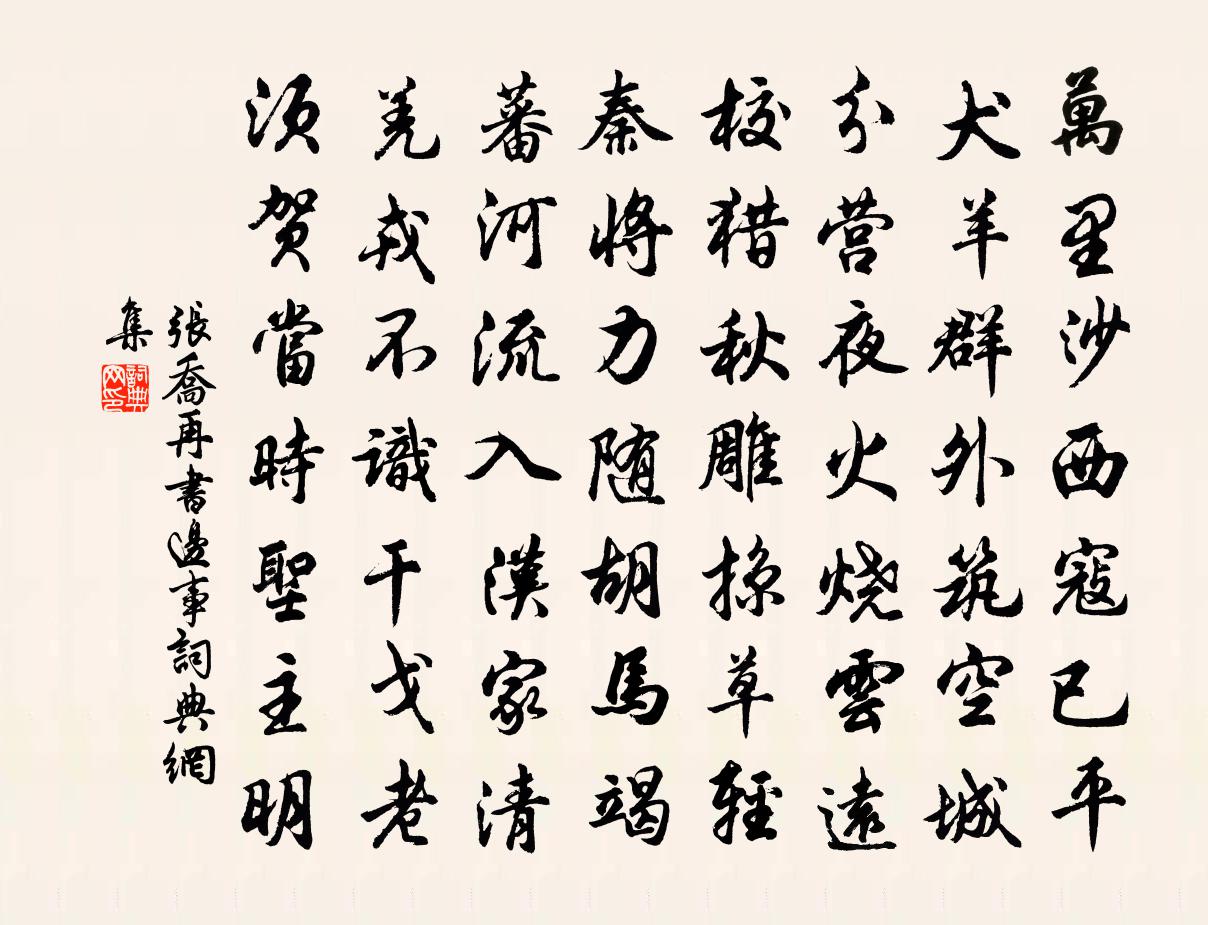 萬里沙西寇已平
犬羊群外筑空城
分营夜火烧雲遠
校猎秋雕掠草輕
秦將力随胡馬竭
蕃河流入漢家清
羌戎不識干戈老
须贺當時聖主明
張喬再書邊事詞典網
集
詞典
网印